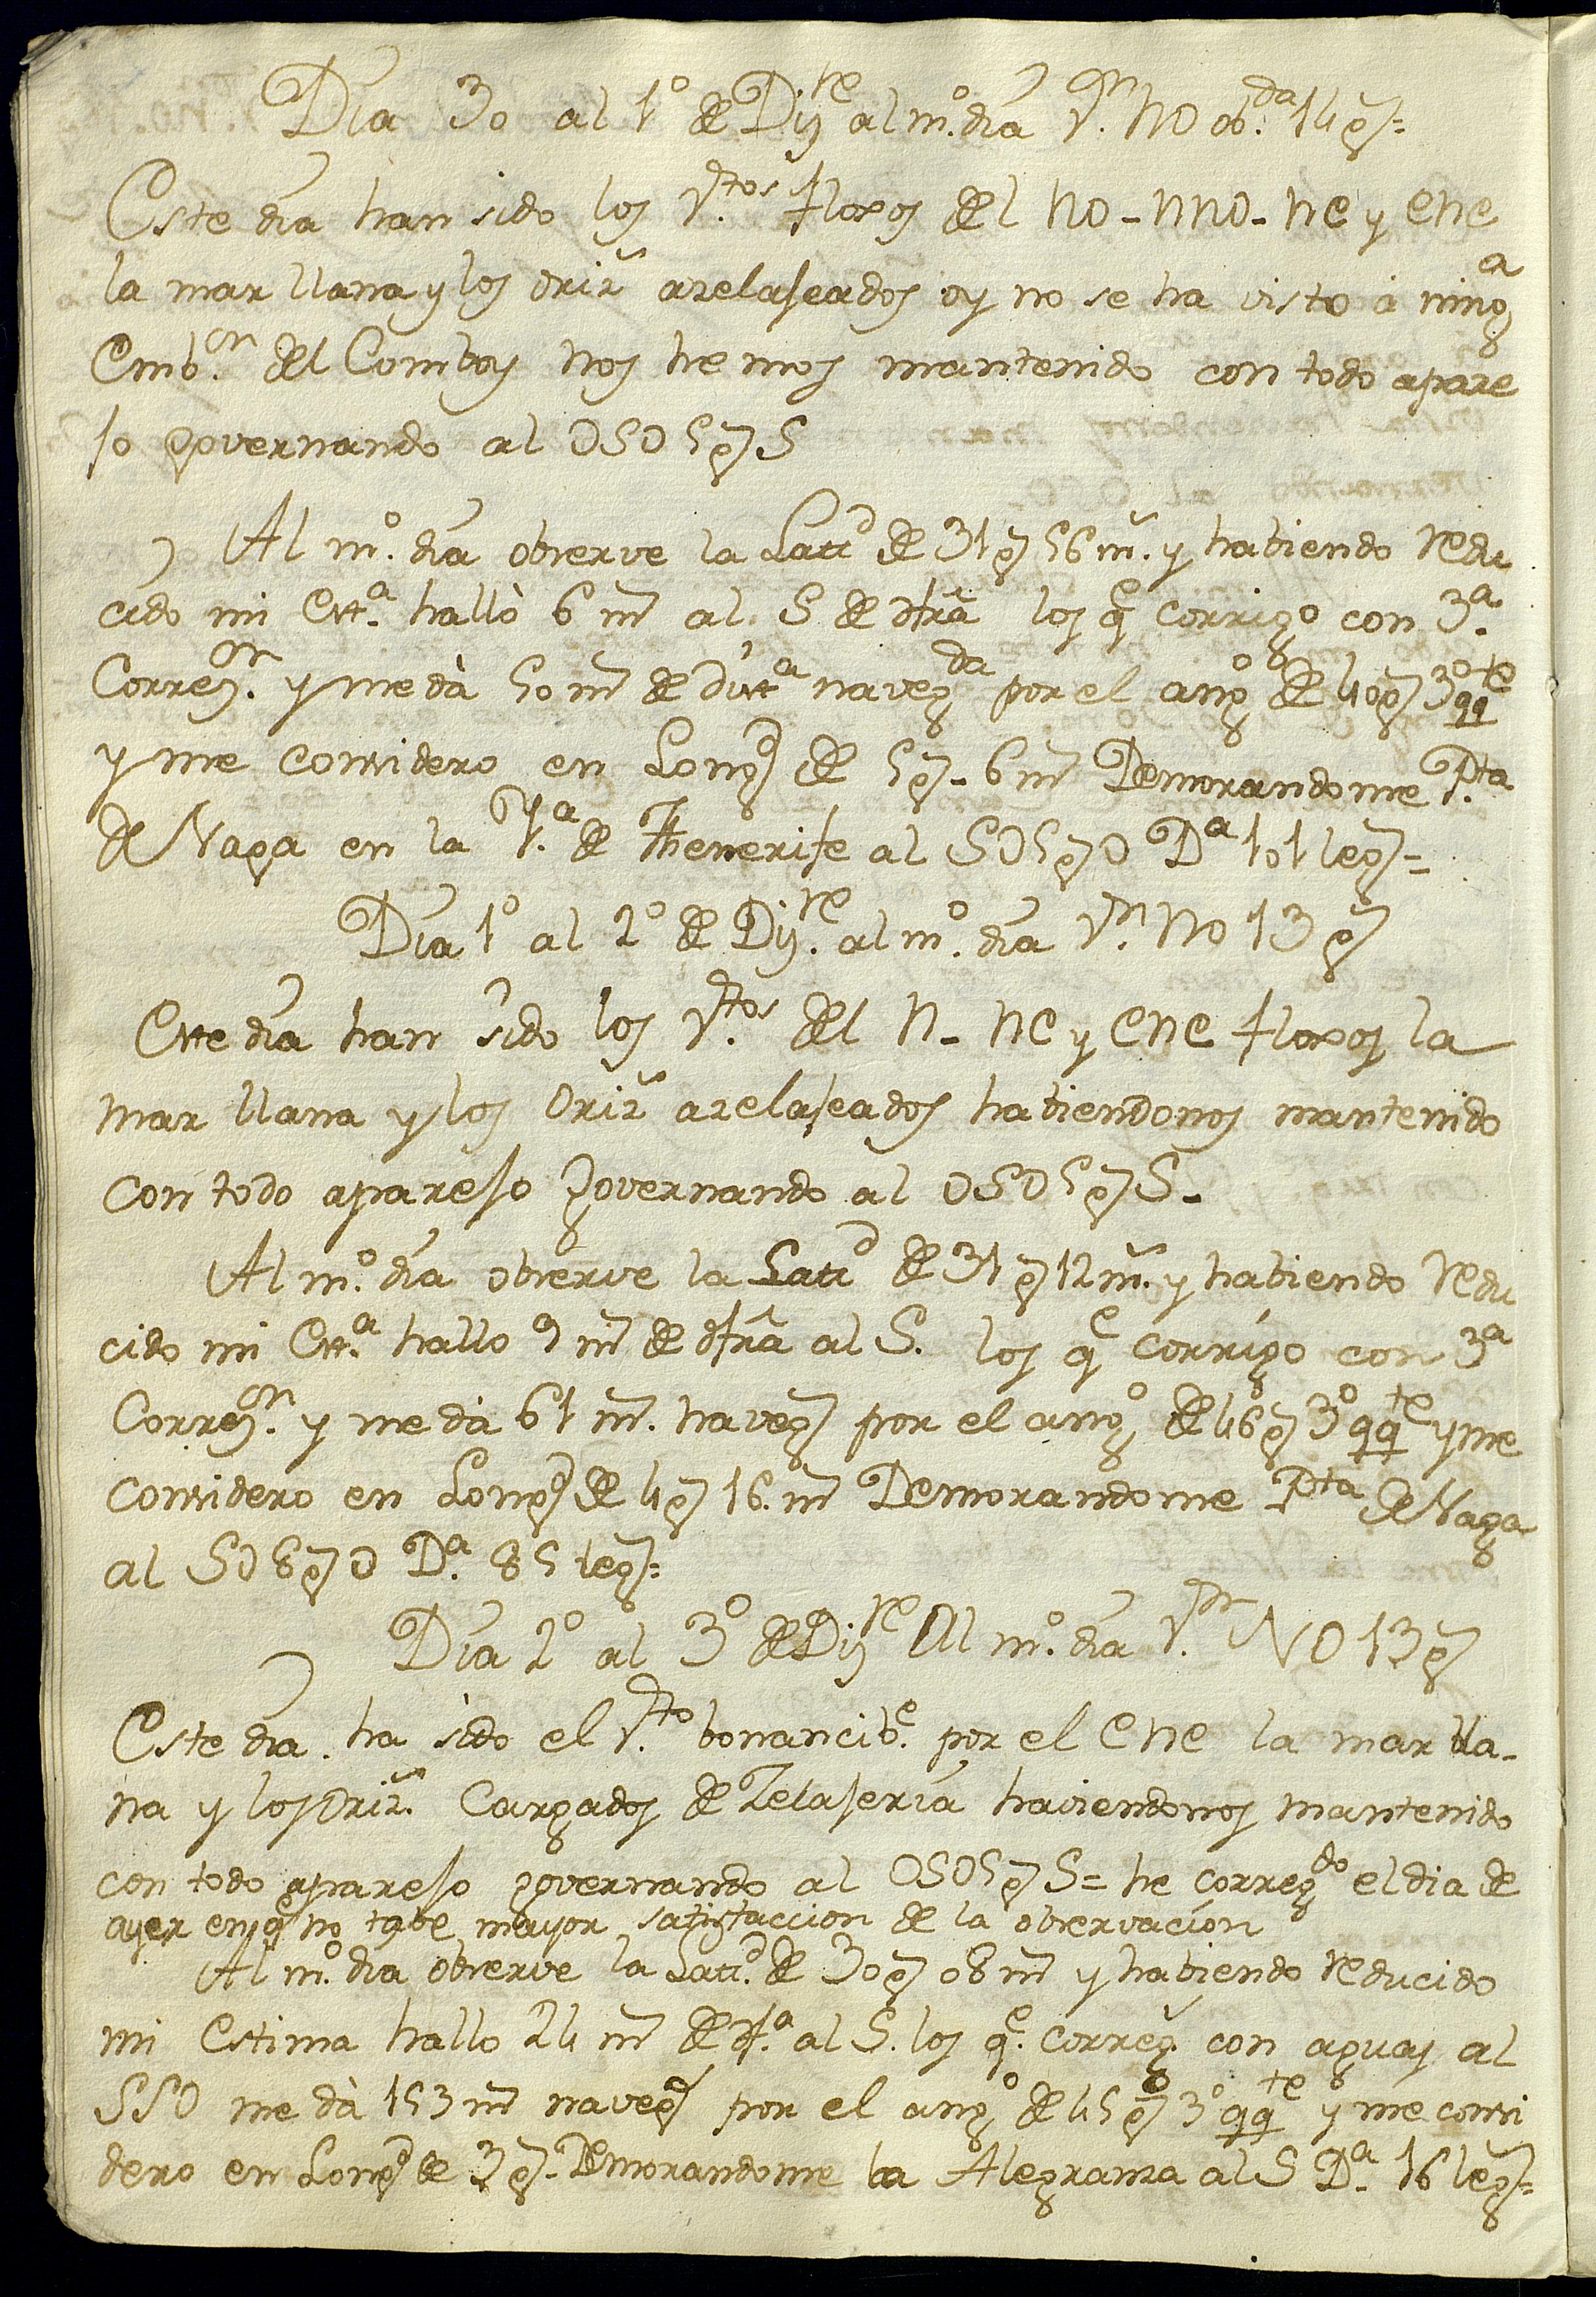 Dia 30 al 1º de Dizre al mº. dia Vn. NO obda. 14 g=
Este dia han sido los Vtos. floxos del NO-NNO-NE y ENE
la mar llana y los orizs arelaseados oy no se ha visto à ninga
Embn. del Comboy nos hemos mantenido con todo apare
so governando al OSO 5 g S
Al mº. dia observe la Latd de 31 g 56 ms. y habiendo redu
cido mi Esta. hallò 6 ms al S de dfra los qe corrigo con 3a.
Correzn. y me dà 50 ms de dista navegda por el angº de 40 g 3º qqte
y me considero en Longd de 5 g - 6 ms Demorandome Pta.
de Naga en la Ya. de Thenerife al SO 5 g O Da 101 leg=
Dia 1º al 2º de Dizre. al mº. dia Vn. NO 13 g
Este dia han sido los Vtos. del N-NE y ENE floxos la
mar llana y los Orizs arelaseados habiendonos mantenido
con todo apareso governando al OSO 5 g S-
Al mº. dia observe la Latd de 31 g 12 ms. y habiendo redu
cido mi Esta. hallo 9 ms de dfra al S. los qe corrigo con 3a
Correzn. y me dà 61 ms. naveg por el angº de 46 g 3º qqte y me
considero en Longd de 4 g 16. ms Demorandome Pta de Naga
al SO 8 g O Da. 85 leg=
Dia 2º al 3º de Dizre Al mº. dia Vn. NO 13 g
Este dia. ha sido el Vto. bonancibe. por el ENE la mar lla-
na y los Orizs. Cargados de Zelaseria haviendonos mantenido
con todo apareso governando al OSO 5 g S= he corregdo el dia de
ayer en qe no tube mayor satisfaccion de la observacion
Al mº. dia observe la Latd. de 30 g 08 ms y habiendo reducido
mi Estima hallo 24 ms de dfa. al S. los qe. correg. con aguas al
SSO me dà 153 ms naveg por el angº de 45 g 3º qqte y me consi
dero en Longd de 3 g- Demorandome la Alegranza al S Da. 16 leg=